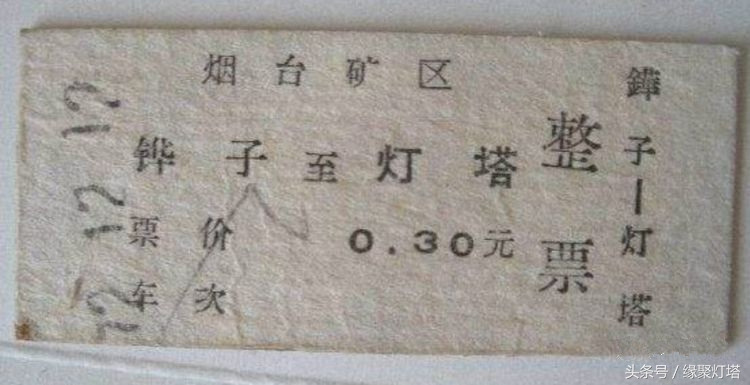 烟台矿区
铧子至灯塔
票价 0.30元
车次
整票
鏵子—灯塔
12 12 12
头条号 / 缘聚灯塔